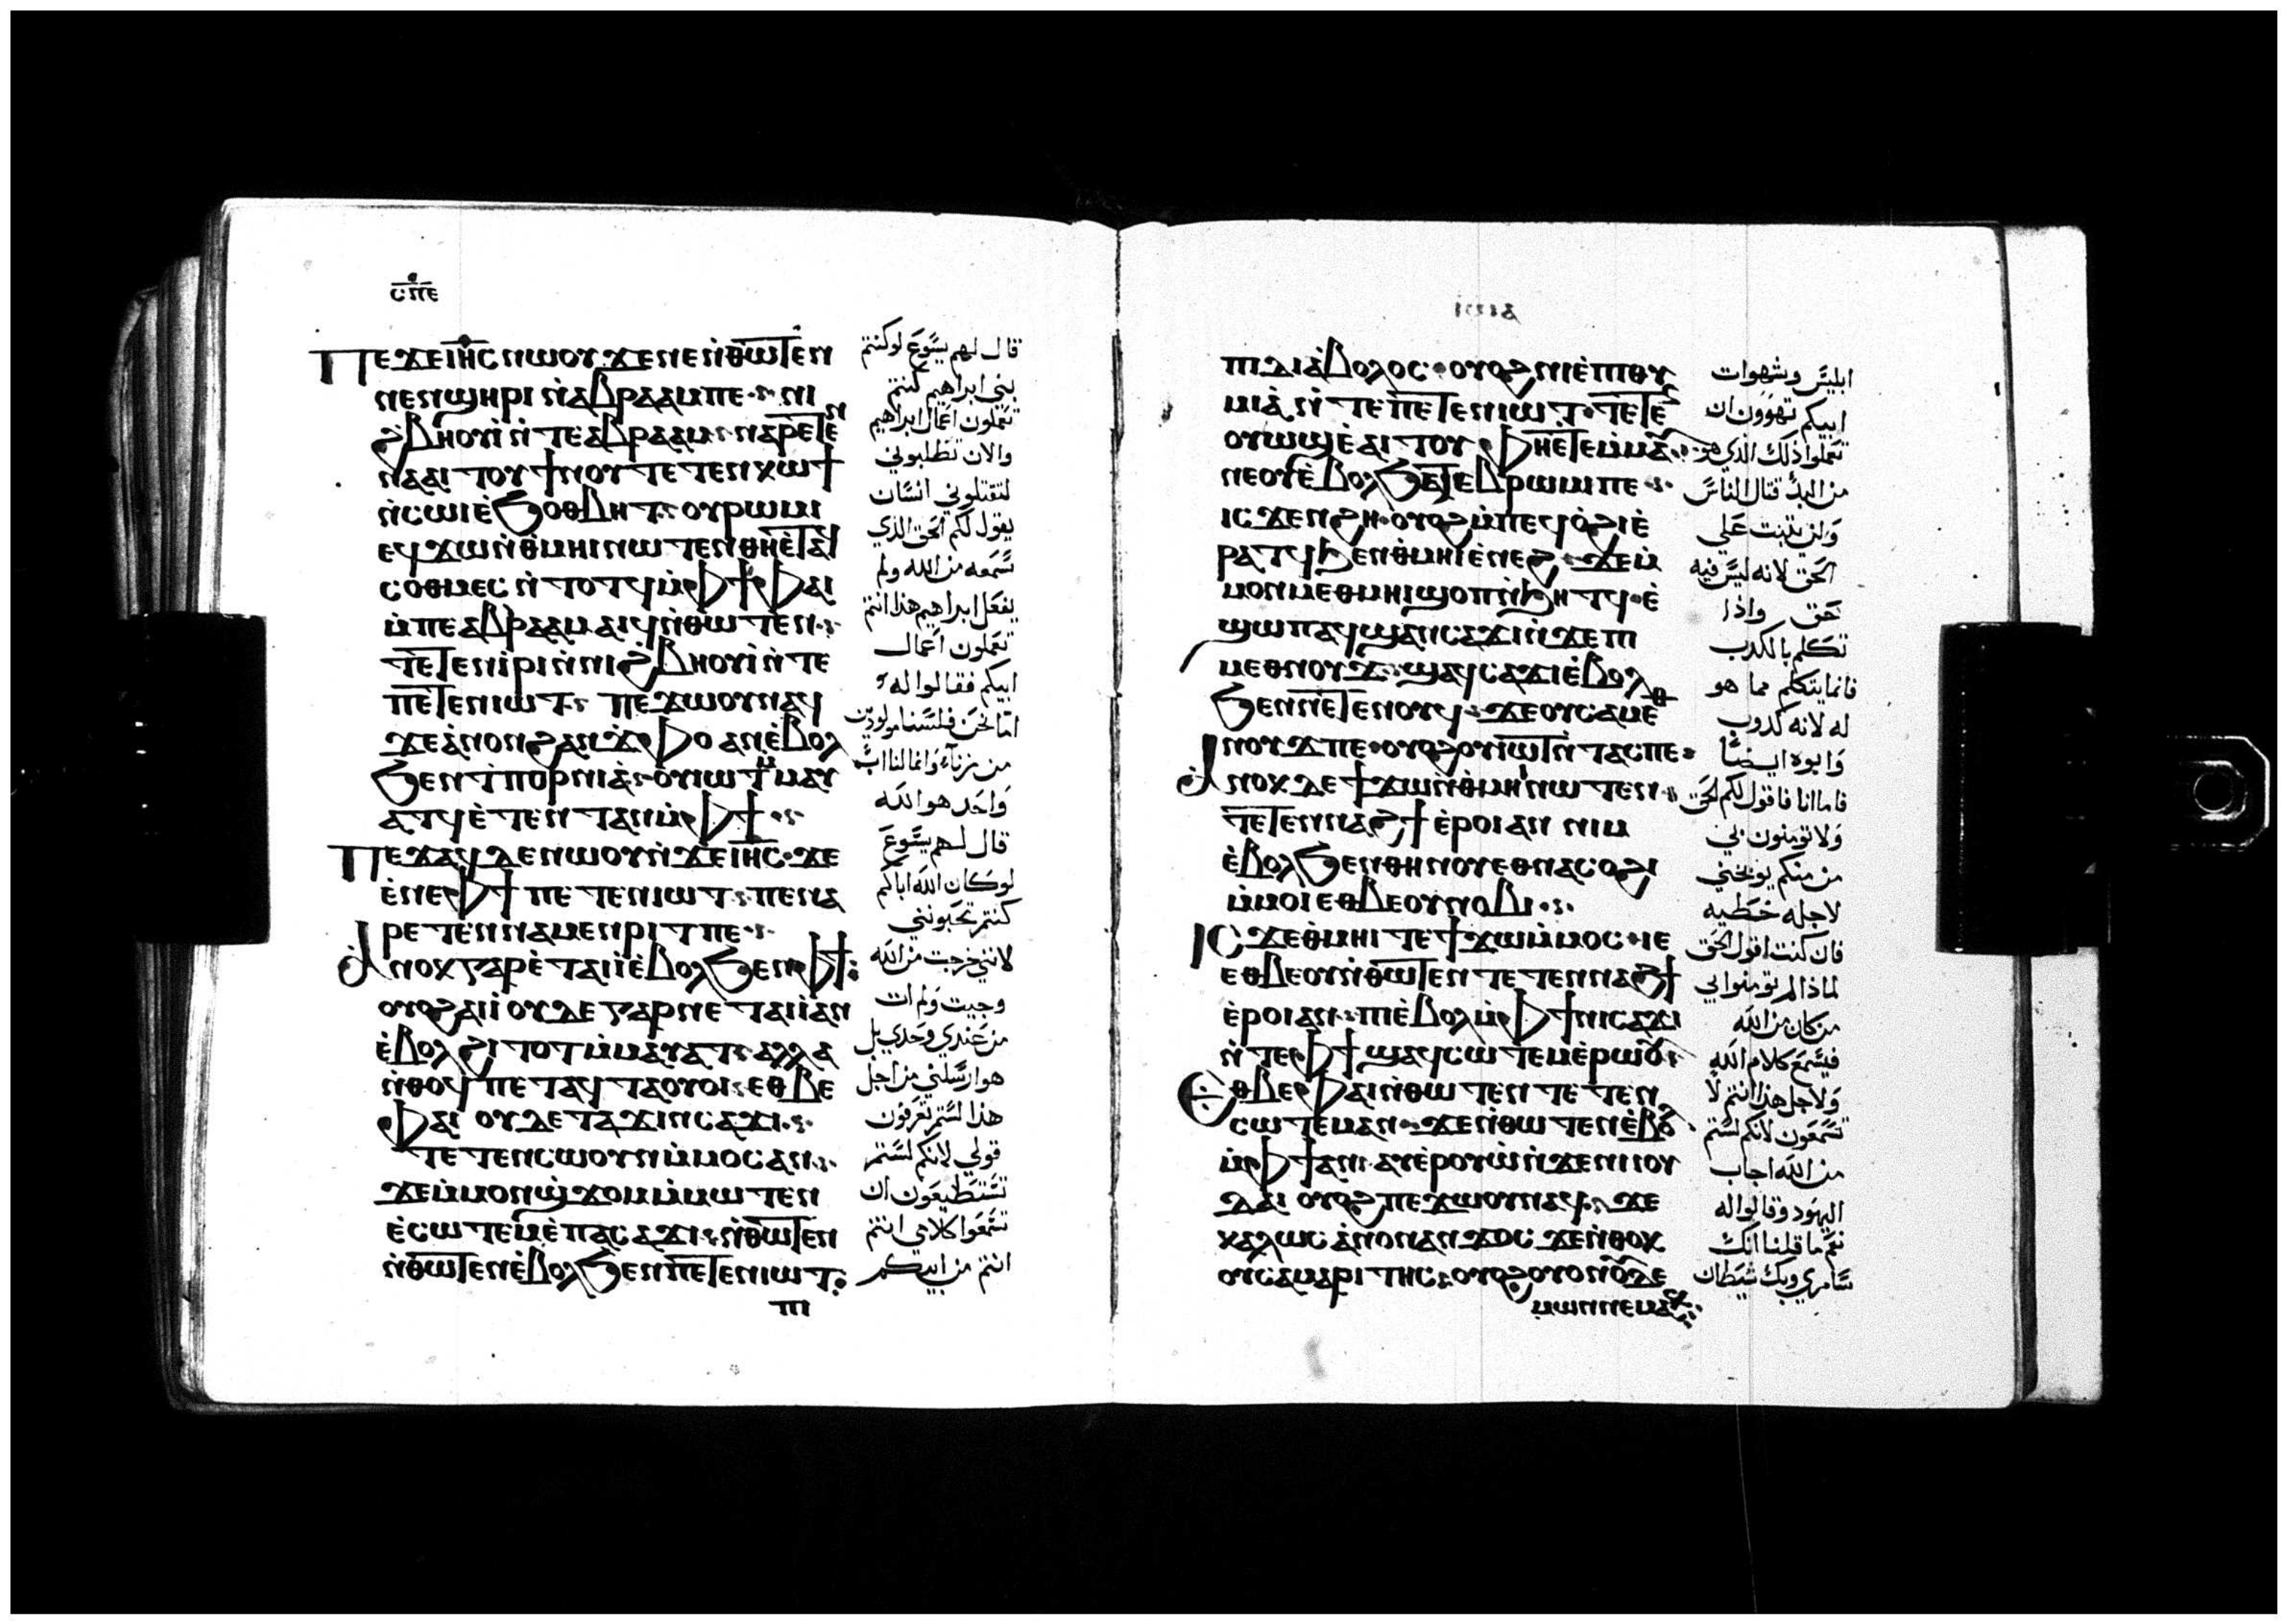 ⲥⲡⲉ
ⲡⲉϫⲉ ⲓⲏⲥ ⲛⲱⲟⲩ ϫⲉ ⲛⲉ ⲛ̀ⲑⲱⲧⲉⲛ
ⲛⲉⲛϣⲏⲣⲓ ⲛ̀ⲁⲃⲣⲁⲁⲙ ⲡⲉ ⲛⲓ
ϩⲃⲏⲟⲩⲓ̀ ⲛ̀ⲧⲉ ⲁⲃⲣⲁⲁⲙ ⲛⲁⲣⲉⲧⲉⲛ
ⲛⲁⲁⲓⲧⲟⲩ ϯⲛⲟⲩ ⲧⲉⲧⲉⲛⲕⲱϯ
ⲛ̀ⲥⲱⲓ ⲉ̀ϧⲟⲑⲃⲏⲧ ⲟⲩⲣⲱⲙⲓ
ⲉϥϫⲱ ⲛ̀ⲑⲙⲏⲓ ⲛⲱⲧⲉⲛ ⲑⲏⲉ̀ⲧⲁϥ
ⲥⲟⲑⲙⲉⲥ ⲛ̀ⲧⲟⲧϥ ⲙ̀ⲫϯ ⲫⲁⲓ
ⲙ̀ⲡⲉ ⲁⲃⲣⲁⲁⲙ ⲁⲓϥ ⲛ̀ⲑⲱⲧⲉⲛ
ⲧⲉⲧⲉⲛⲓ̀ⲣⲓ ⲛ̀ⲛⲓϩⲃⲏⲟⲩⲓ̀ ⲛ̀ⲧⲉ
ⲡⲉⲧⲉⲛⲓⲱⲧ ⲡⲉϫⲱⲟⲩ ⲛⲁϥ
ϫⲉ ⲁ̀ⲛⲟⲛ ϩⲁⲛϫⲫⲟ ⲁⲛ ⲉ̀ⲃⲟⲗ
ϧⲉⲛ ϯⲡⲟⲣⲛⲓⲁ̀ ⲟⲩⲓⲱⲧ ⲙ̀ⲙⲁⲩ
ⲁⲧϥ ⲉ̀ⲧⲉⲛⲧⲁⲛ ⲙ̀ⲫϯ
ⲡⲉϫⲁϥ ⲇⲉ ⲛⲱⲟⲩ ⲛ̀ϫⲉ ⲓⲏⲥ ϫⲉ
ⲉ̀ⲛⲉ ⲫϯ ⲡⲉⲧⲉⲛⲓⲱⲧ ⲡⲉ ⲛⲁ
ⲣⲉⲧⲉⲛⲛⲁⲙⲉⲛⲣⲓⲧ ⲡⲉ
ⲁ̀ⲛⲟⲕ ⲅⲁⲣ ⲉ̀ⲧⲁⲓⲓ̀ ⲉ̀ⲃⲟⲗ ϧⲉⲛ ⲫϯ
ⲟⲩⲟϩ ⲁⲓⲓ̀ ⲟⲩⲇⲉ ⲅⲁⲣ ⲛⲉⲧⲁⲓⲓ̀ ⲁⲛ
ⲉ̀ⲃⲟⲗ ϩⲓⲧⲟⲧ ⲙ̀ⲙⲁⲩⲁⲧ ⲁⲗⲗⲁ
ⲛ̀ⲑⲟϥ ⲡⲉⲧⲁϥⲧⲁⲟⲩⲟⲓ ⲉⲑⲃⲉ
ⲫⲁⲓ ⲟⲩⲇⲉ ⲧⲁϫⲓⲛⲥⲁϫⲓ
ⲧⲉⲧⲉⲛⲥⲱⲟⲩⲛ ⲙ̀ⲙⲟⲥ ⲁⲛ
ϫⲉ ⲙ̀ⲙⲟⲛϣϫⲟⲙ ⲙ̀ⲙⲱⲧⲉⲛ
ⲉ̀ⲥⲱⲧⲉⲙ ⲉ̀ⲡⲁⲥⲁϫⲓ ⲛ̀ⲑⲱⲧⲉⲛ
ⲛ̀ⲑⲱⲧⲉⲛ ⲉ̀ⲃⲟⲗ ϧⲉⲛ ⲡⲉⲧⲉⲛⲓⲱⲧ
ⲡⲓ
قال لهم يسوع لو كنتم
بني ابراهيم كنتم
تعملون اعمال ابراهيم
والان تطلبوني
لتقتلوني انسان
يقول لكم الحق الذي
سمعه من الله ولم
يفعل ابراهيم هذا انتم
تعملون اعمال
ابيكم فقالوا له
اما نحن فلسنا مولودين
من زناء وانما لنا اب
واحد هو الله
قال لهم يسوع
لو كان الله اباكم
كنتم تحبونني
لانني خرجت من الله
وجيت ولم ات
من عندي وحدي بل
هو ارسلني من اجل
هذا لستم تعرفون
قولي لانكم لستم
تستطيعون ان
تسمعوا كلامي انتم
انتم من ابيكم
ⲡⲓⲇⲓⲁ̀ⲃⲟⲗⲟⲥ ⲟⲩⲟϩ ⲛⲓⲉ̀ⲡⲓⲑⲩ
ⲙⲓⲁ̀ ⲛ̀ⲧⲉ ⲡⲉⲧⲉⲛⲓⲱⲧ ⲧⲉⲧⲉⲛ
ⲟⲩⲱϣ ⲉ̀ⲁⲓⲧⲟⲩ ⲫⲏⲉⲧⲉⲙ̀ⲙⲁⲩ
ⲛⲉ ⲟⲩϧⲁⲧⲉⲃⲣⲱⲙⲓ ⲡⲉ
ⲓⲥϫⲉⲛ ϩⲏ ⲟⲩⲟϩ ⲙ̀ⲡⲉϥⲟ̀ϩⲓ ⲉ̀
ⲣⲁⲧϥ ϧⲉⲛ ⲑⲙⲏⲓ ⲉ̀ⲛⲉϩ ϫⲉ ⲙ̀
ⲙⲟⲛ ⲙⲉⲑⲙⲏⲓ ϣⲟⲡ ⲛ̀ϧⲏⲧϥ ⲉ̀
ϣⲱⲡ ⲁϥϣⲁⲛⲥⲁϫⲓ ⲛ̀ϫⲉ ⲡⲓ
ⲙⲉⲑⲛⲟⲩϫ ϣⲁϥⲥⲁϫⲓ ⲉ̀ⲃⲟⲗ
ϧⲉⲛ ⲡⲉⲧⲉⲛⲟⲩϥ ϫⲉ ⲟⲩⲥⲁⲙⲉⲑ
ⲛⲟⲩϫ ⲡⲉ ⲟⲩⲟϩ ⲟⲩⲓⲱⲧ ⲛ̀ⲧⲁϥ ⲡⲉ
ⲁ̀ⲛⲟⲕ ⲇⲉ ϯϫⲱ ⲛ̀ⲑⲙⲏⲓ ⲛⲱⲧⲉⲛ
ⲧⲉⲧⲉⲛⲛⲁϩϯ ⲉ̀ⲣⲟⲓ ⲁⲛ ⲛⲓⲙ
ⲉ̀ⲃⲟⲗ ϧⲉⲛ ⲑⲏⲛⲟⲩ ⲉⲑⲛⲁⲥⲟϩⲓ
ⲙ̀ⲙⲟⲓ ⲉⲑⲃⲉ ⲟⲩⲛⲟⲃⲓ
ⲓⲥϫⲉ ⲑⲙⲏⲓ ⲧⲉ ϯϫⲱ ⲙ̀ⲙⲟⲥ ⲓⲉ
ⲉⲑⲃⲉⲟⲩ ⲛ̀ⲑⲱⲧⲉⲛ ⲧⲉⲧⲉⲛⲛⲁϩϯ
ⲉ̀ⲣⲟⲓ ⲁⲛ ⲡⲓⲉ̀ⲃⲟⲗ ⲙ̀ⲫϯ ⲛⲓⲥⲁϫⲓ
ⲛ̀ⲧⲉ ⲫϯ ϣⲁϥⲥⲱⲧⲉⲙ ⲉ̀ⲣⲱⲟⲩ
ⲉⲑⲃⲉ ⲫⲁⲓ ⲛ̀ⲑⲱⲧⲉⲛ ⲧⲉⲧⲉⲛ
ⲥⲱⲧⲉⲙ ⲁⲛ ϫⲉ ⲛ̀ⲑⲱⲧⲉⲛ ⲉ̀ⲃⲟⲗ
ⲙ̀ⲫϯ ⲁⲛ ⲁⲩⲉ̀ⲣⲟⲩⲱ̀ ⲛ̀ϫⲉ ⲛⲓⲓⲟⲩ
ⲇⲁⲓ ⲟⲩⲟϩ ⲡⲉϫⲱⲟⲩ ⲛⲁϥ ϫⲉ
ⲕⲁⲗⲱⲥ ⲁ̀ⲛⲟⲛ ⲁⲛϫⲟⲥ ϫⲉ ⲛ̀ⲑⲟⲕ
ⲟⲩⲥⲁⲙⲁⲣⲓⲧⲏⲥ ⲟⲩⲟϩ ⲟⲩⲟⲛ ⲟⲩⲇⲉ
ⲙⲱⲛ ⲛⲉⲙⲁⲕ
ابليس وشهوات
ابيكم تهوون ان
تعملوا ذلك الذي هو
من البدء قتال الناس
ولن يثبت على
الحق لانه ليس فيه
حق واذا
تكلم بالكدب
فانما يتكلم مما هو
له لانه كدوب
وابوه ايضا
فاما انا فاقول لكم الحق
ولا تومنون بي
من منكم يوبخني
لاجله خطيه
فان كنت اقول الحق
لماذا لم تومنوا بي
من كان من الله
فيسمع كلام الله
ولاجل هذا انتم لا
تسمعون لانكم لستم
من الله اجاب
اليهود وقالوا له
نعم ما قلنا انك
سامري وبك شيطان